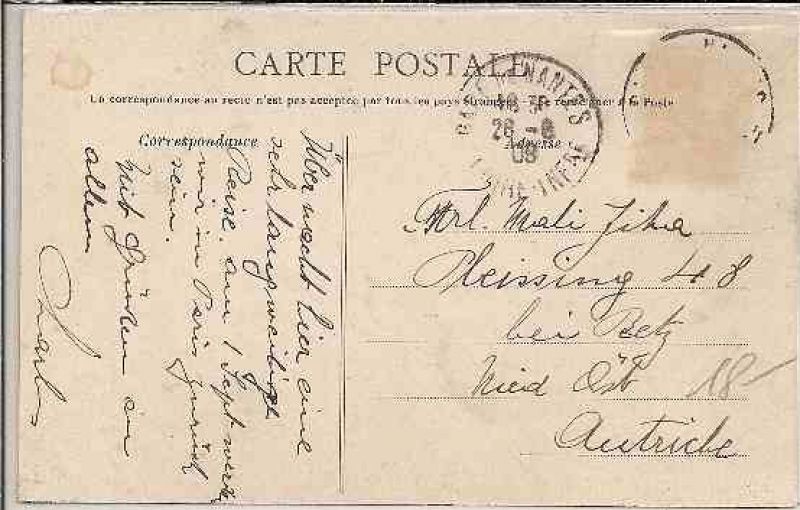 CARTE POSTALE
La correspondance au recto n'est pas acceptée par tous les pays étrangers - Se renseigner à la Poste
Correspondance
Über nacht hier eine
sehr langweilige
Reise. am 1 Sept werde
wir in Paris zurück
sein.
Mit Grüßen an
allen
NANTES
26 -8
08
Adresse
Frl. Mali Jiha
Pleissing 48
bei Retz
Nied Öst
Autriche
18-